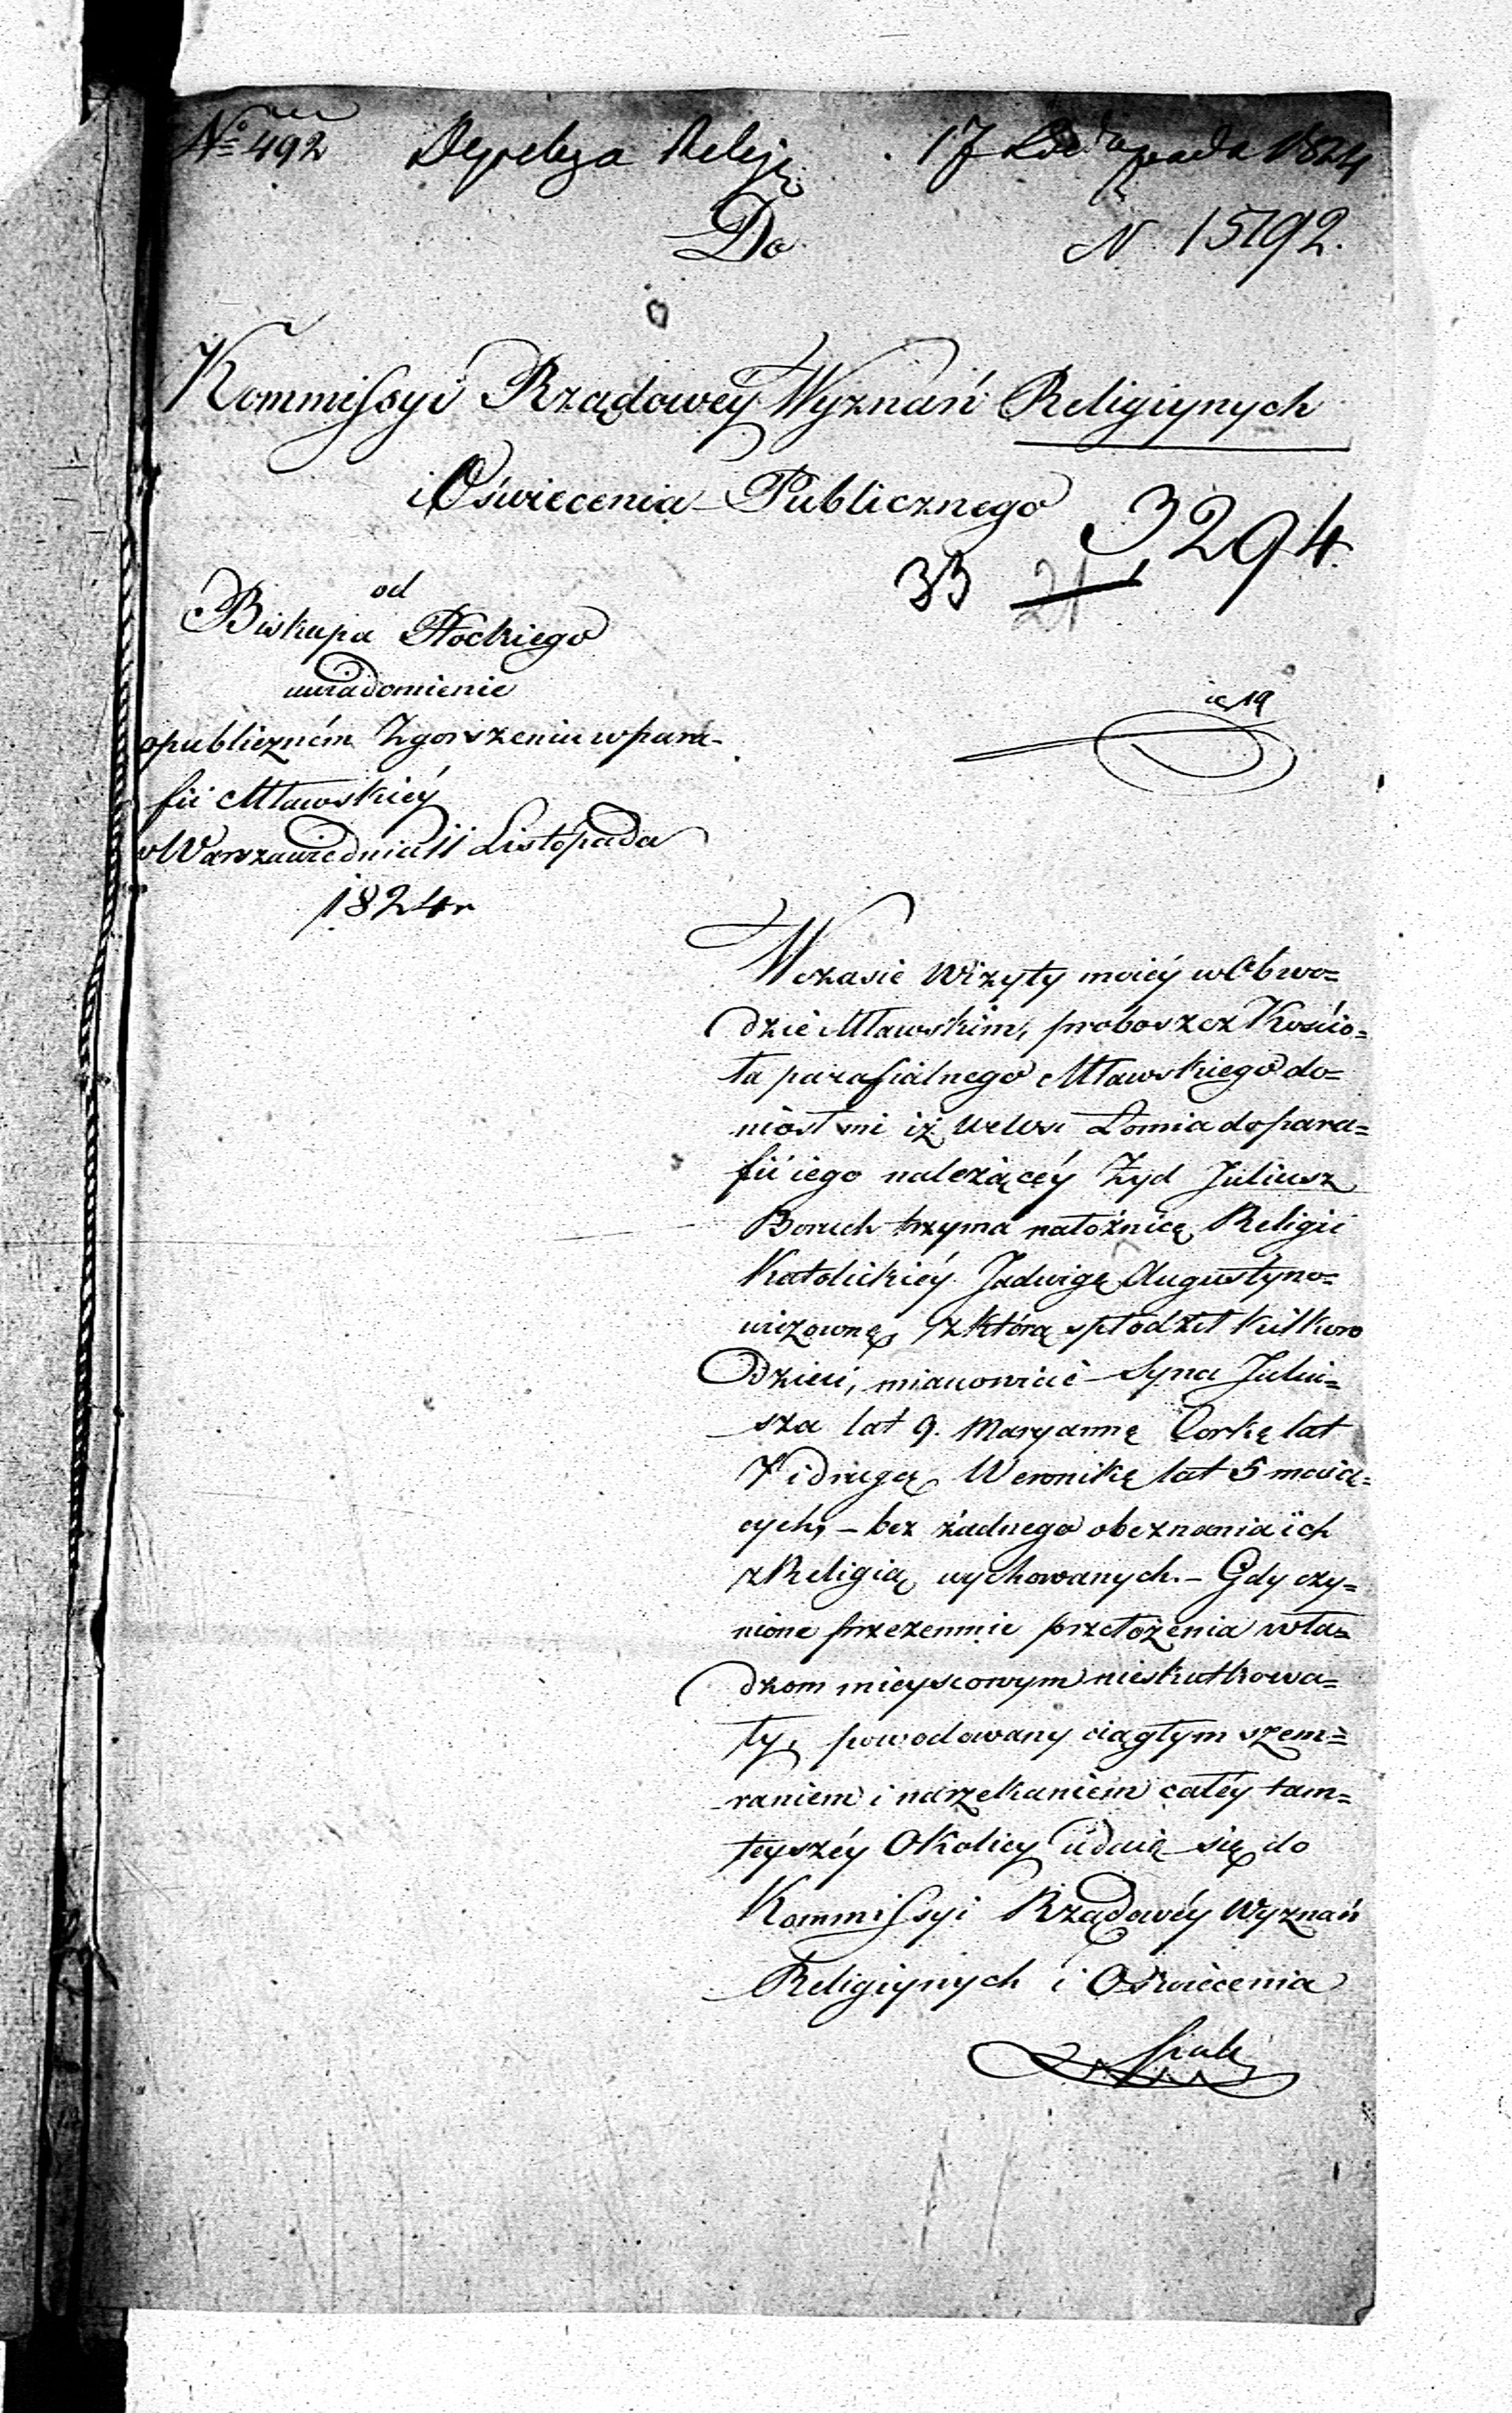 No 492
17 Listopada 1824
Do
N 15192.
Kommissyi Rządowey Wyznań Religiynych
i Oświecenia Publicznego
3294
33 21
od
Biskupa Płockiego
uwiadomienie
o publiczném Zgorszeniu w para-
fii Mławskiéy
w Warszawie dnia 11 Listopada
1824 r
W czasie Wizyty moiéy w Obwo=
dzie Mławskim, proboszcz Kościo=
ła parafialnego Mławskiego do=
niosł mi iż we Wsi Łomia do para=
fii iego należącéy Żyd Juliusz
Boruch trzyma nałożnicę Religii
Katolickiéy Jadwigę Augustyno=
wiczownę, z którą spłodził kilkoro
Dzieci, mianowicie Syna Juliu=
sza lat 9. Maryannę Corkę lat
7 i drugą Weronikę lat 5 maią=
cych, – bez żadnego obeznania ich
z Religią wychowanych. – Gdy czy=
nione przezemnie przełożenia wła=
dzom mieyscowym nieskutkowa=
ły, powodowany ciągłym szem=
raniem i narzekaniem całéy tam=
teyszéy Okolicy udaię się do
Kommissyi Rządowéy Wyznań
Religiynych i Oświecenia